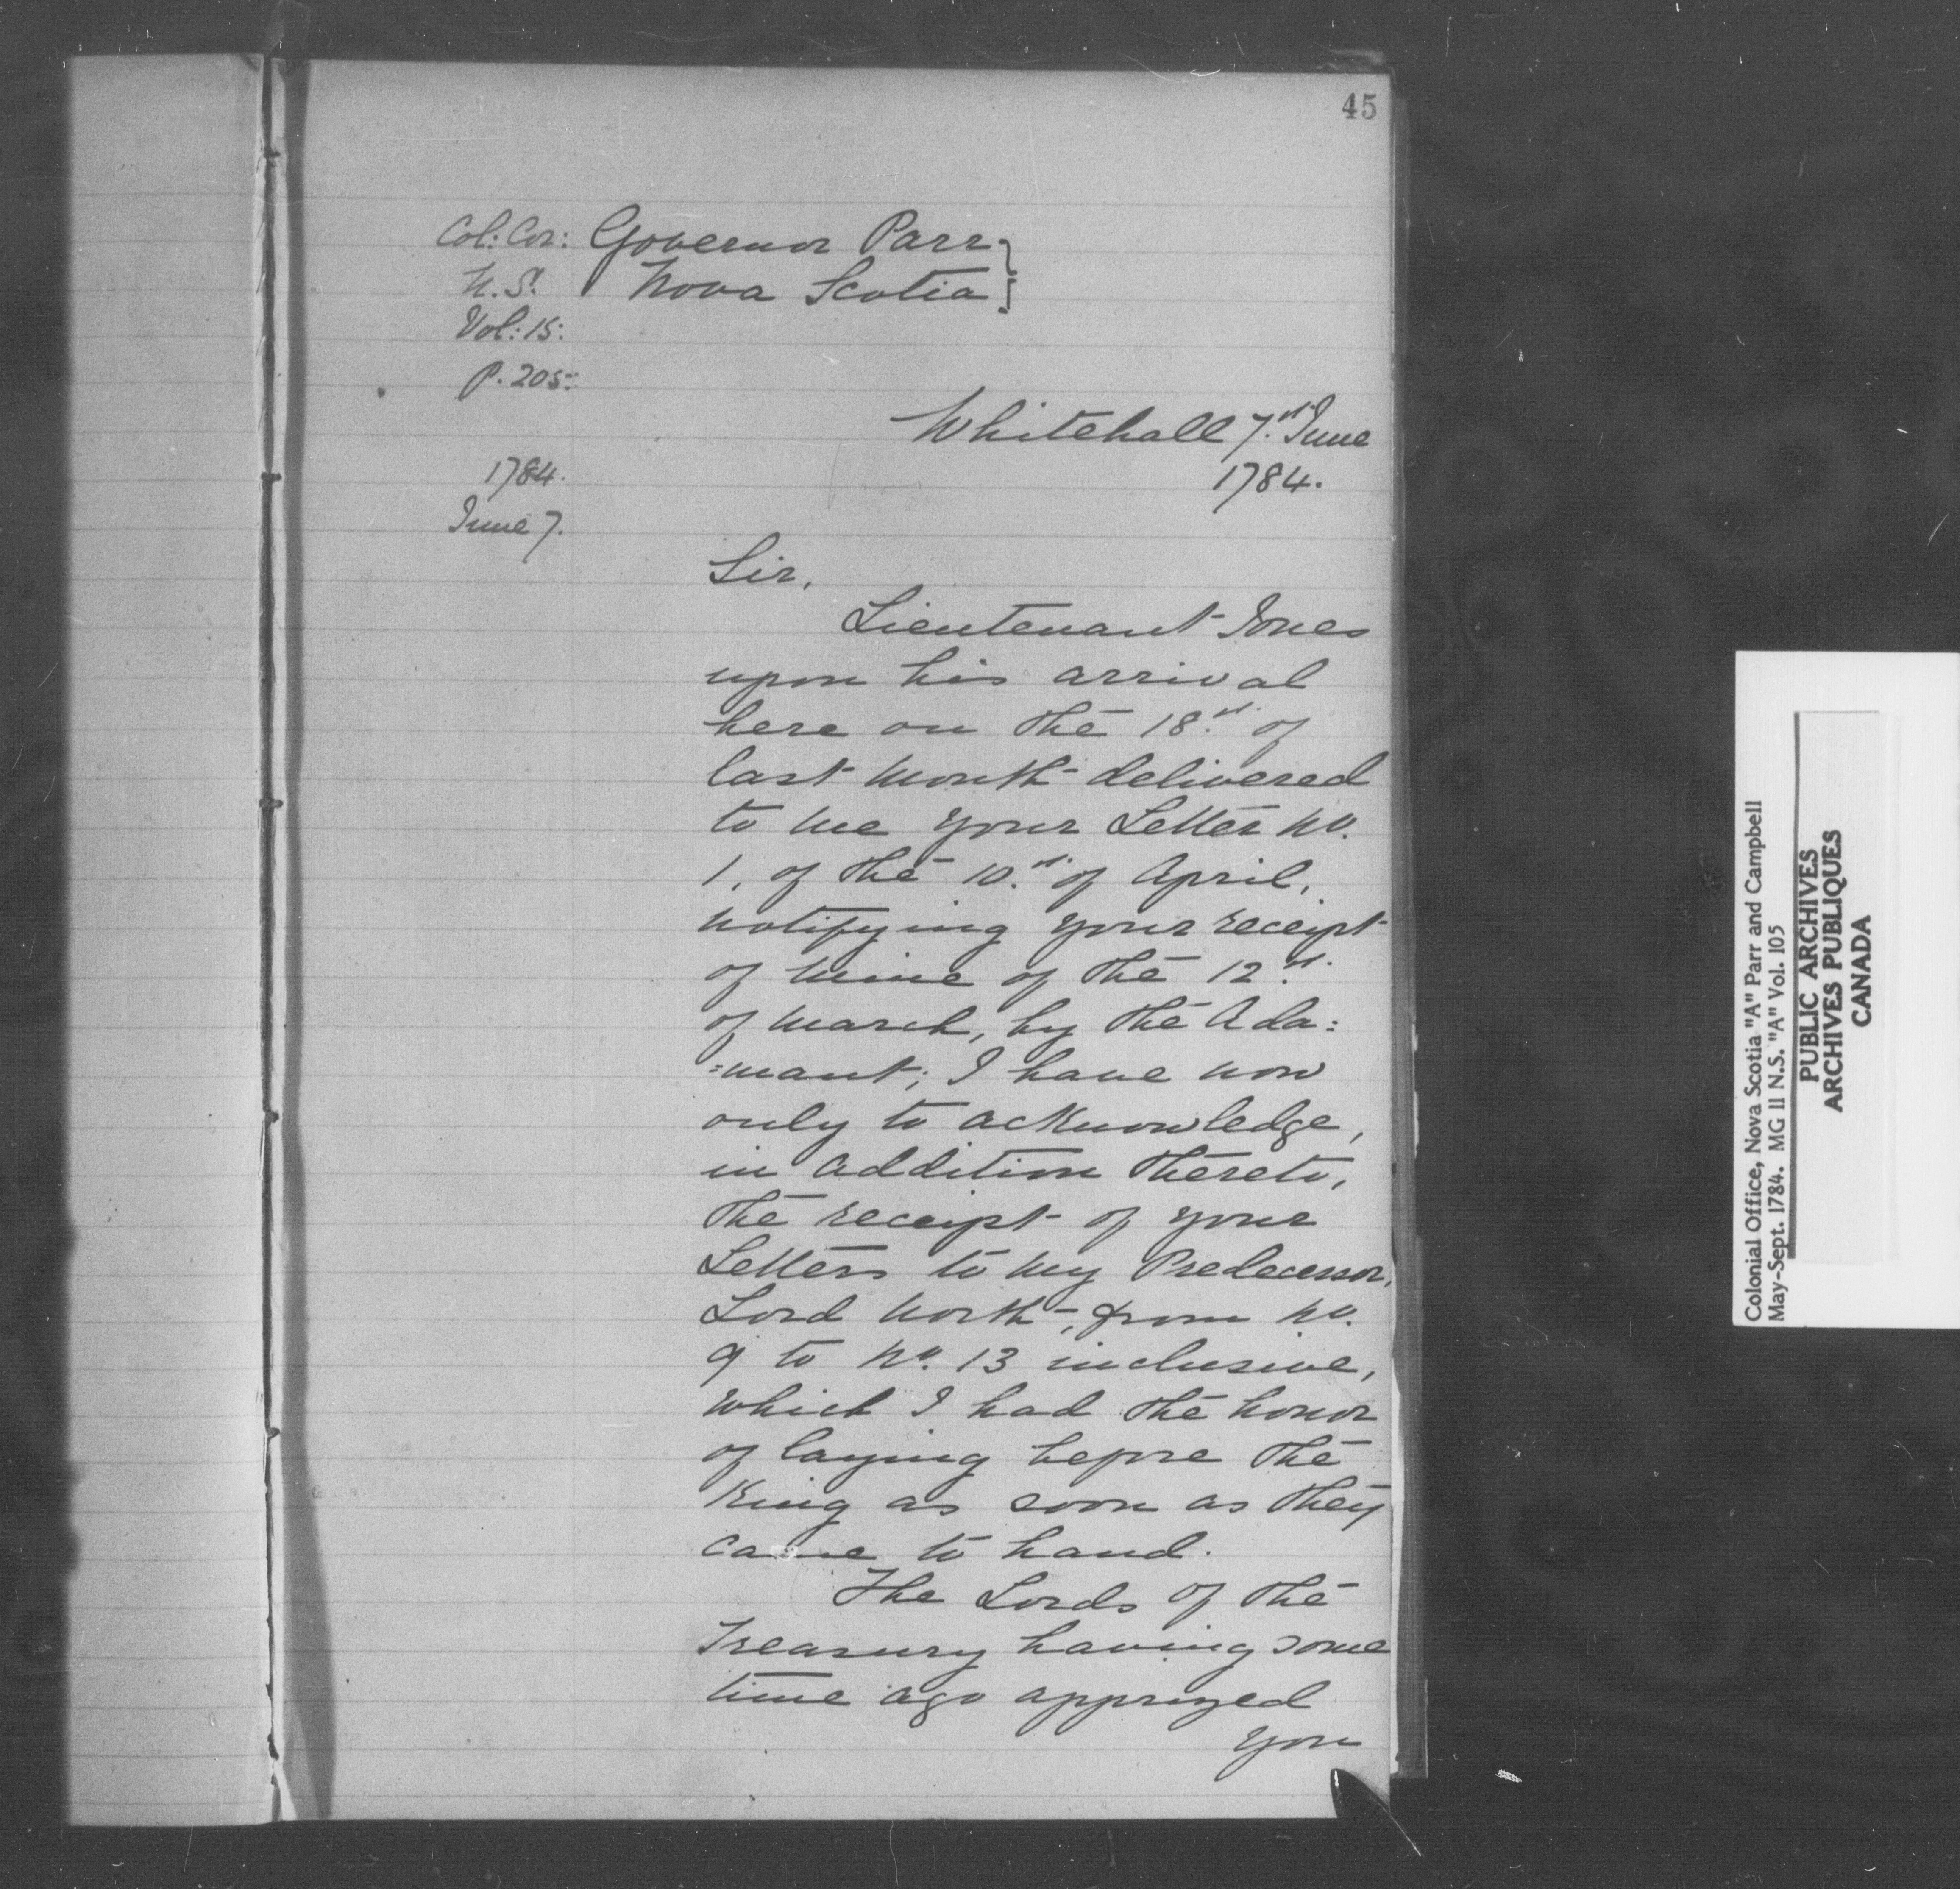 45
Col: Cor: Governor Parr }
N.S. Nova Scotia }
Vol: 15:
P. 205:
Whitehall 7th June
1784.
1784.
June 7.
Sir,
Lieutenant Jones
upon his arrival
here on the 18th. of
last month delivered
to me your Letter No.
1, of the 10th. of April,
notifying your receipt
of mine of the 12th.
of March, by the Ada:
:mant; I have now
only to acknowledge,
in addition thereto,
the receipt of your
Letters to my Predecessor,
Lord North, from No.
9 to No. 13 inclusive,
which I had the honor
of laying before the
King as soon as they
came to hand.
The Lords of the
Treasury having some
time ago apprized
you
Colonial Office, Nova Scotia "A" Parr and Campbell
May-Sept. 1784. MG 11 N.S. "A" Vol. 105
PUBLIC ARCHIVES
ARCHIVES PUBLIQUES
CANADA